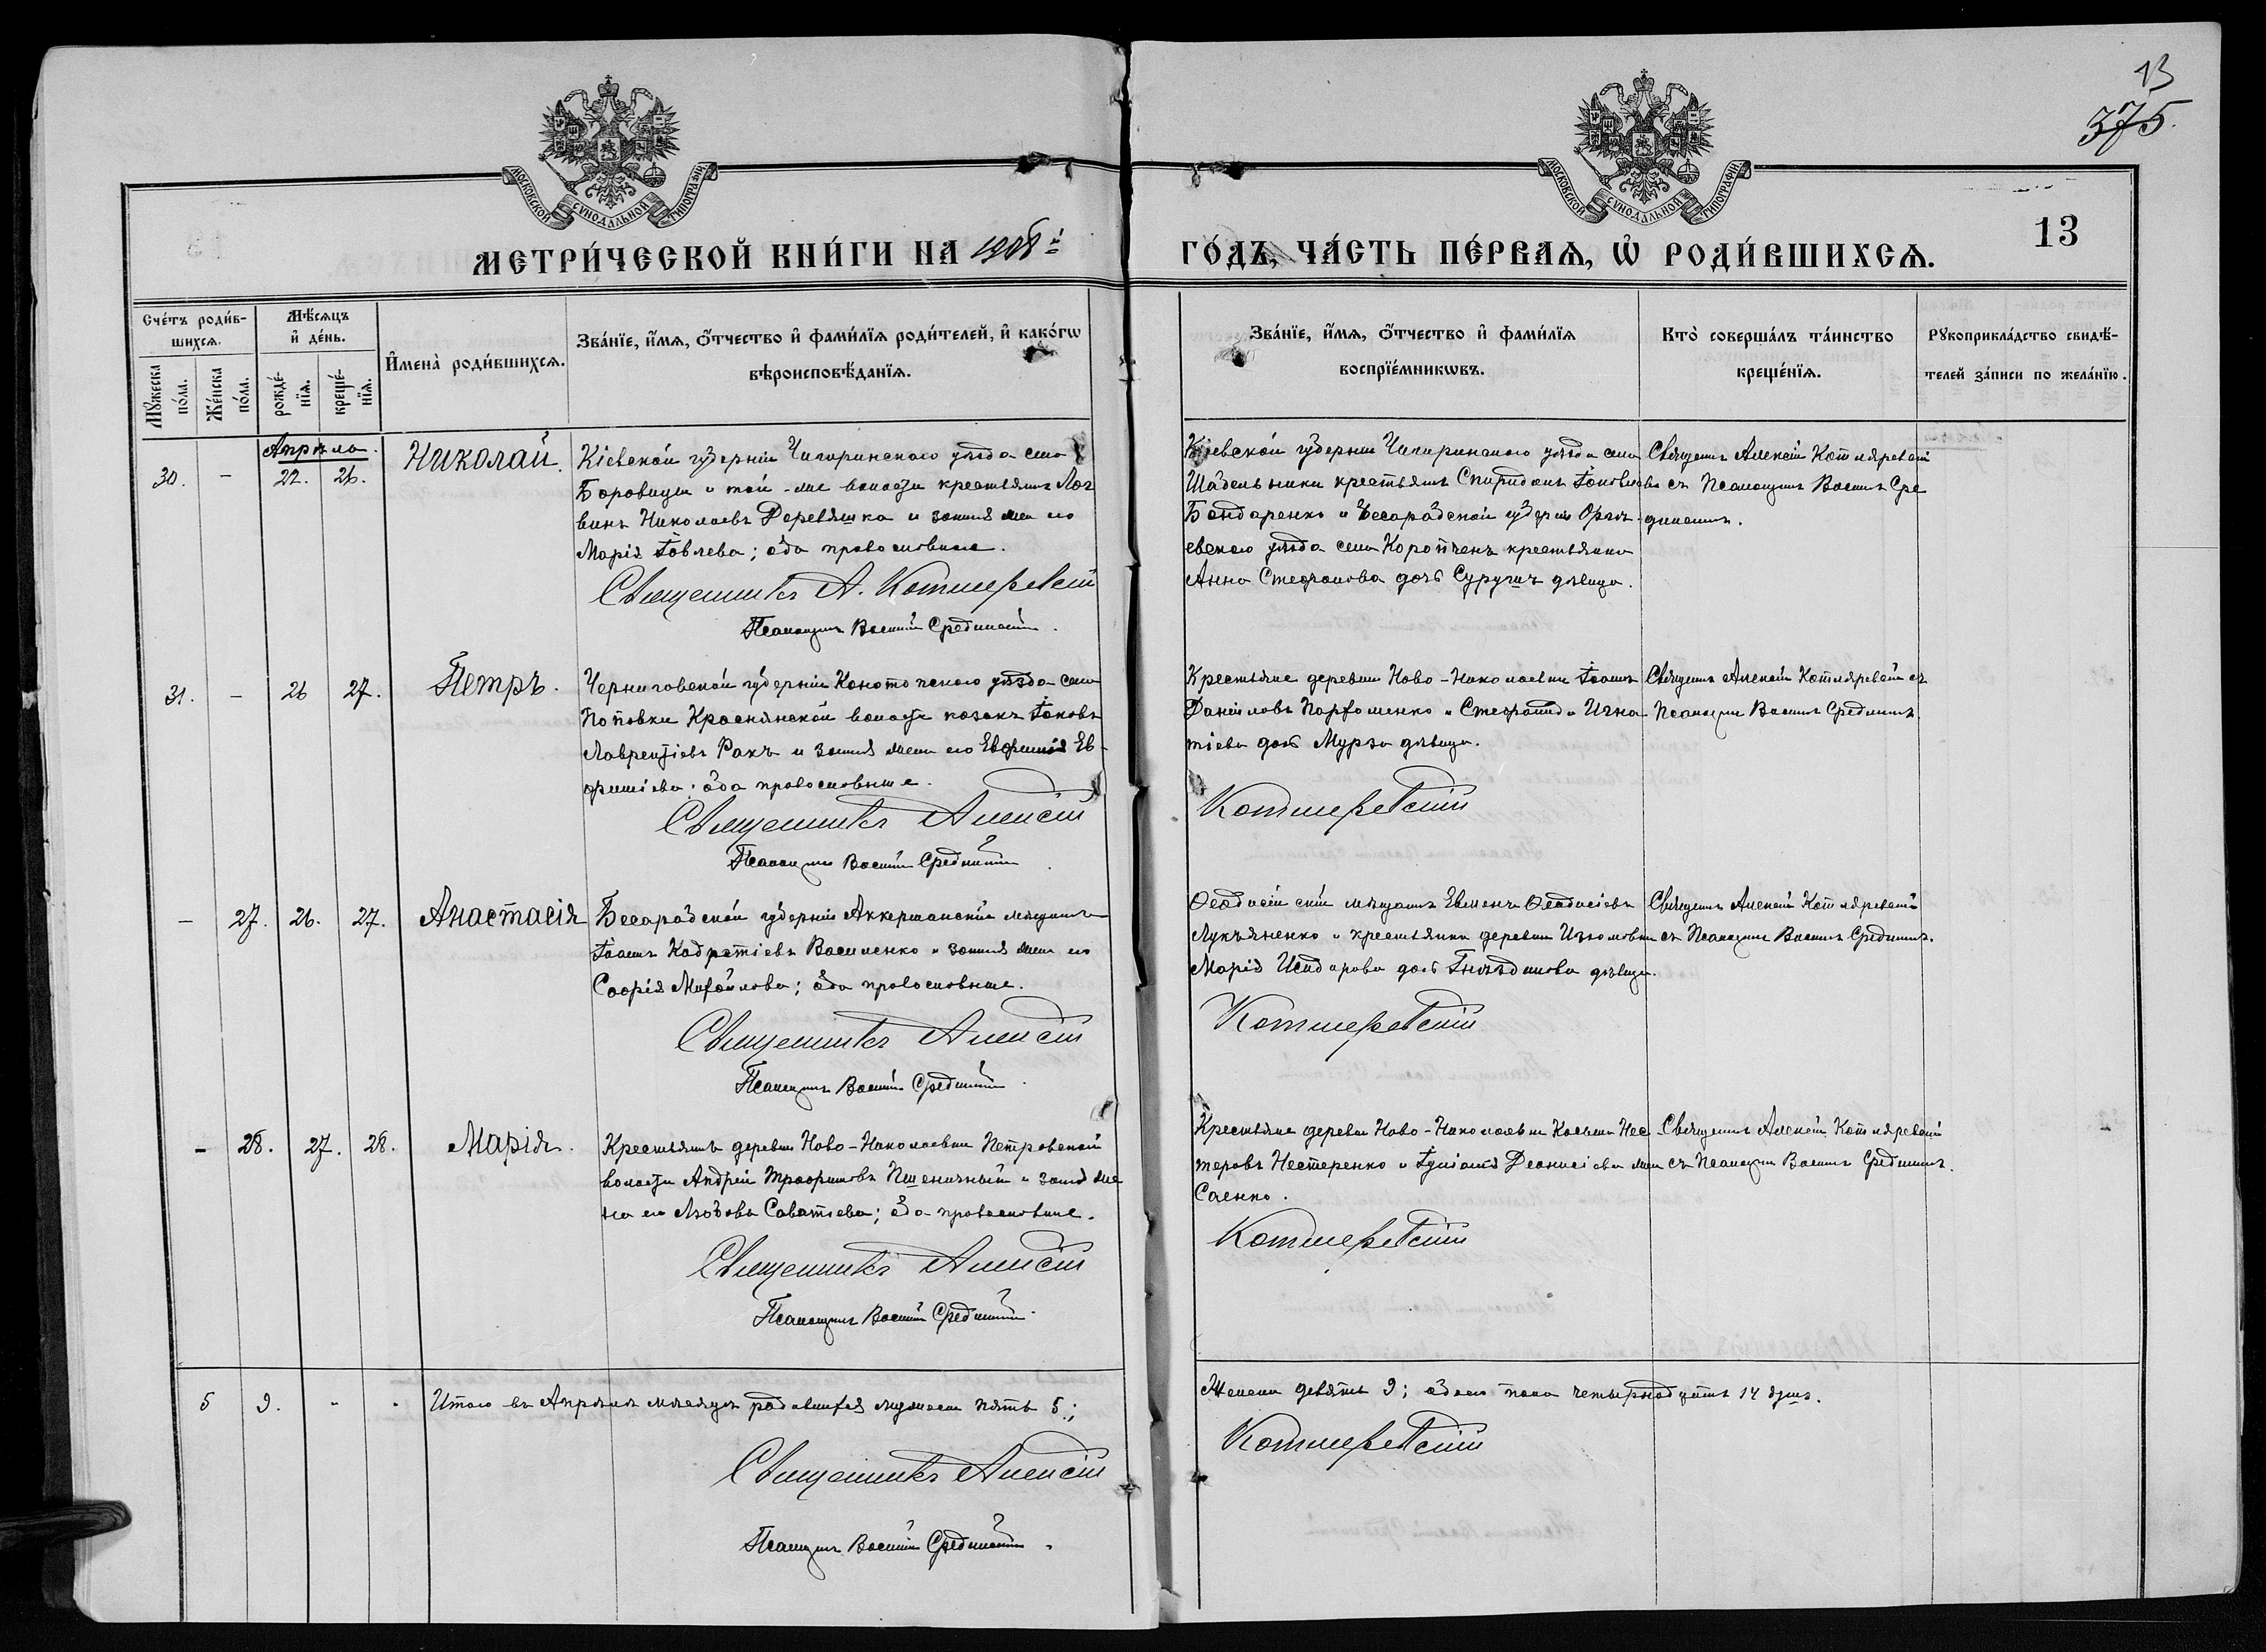 13
375.
МОСКОВСКОЙ СУНОДАЛЬНОЙ ТИПОГРАФІИ.
МОСКОВСКОЙ СУНОДАЛЬНОЙ ТИПОГРАФІИ.
МЕТРИ́ЧЕСКОЙ КНИ́ГИ НА 1908 й
ГО́ДЪ, ЧА́СТЬ ПЕ́РВАѦ, Ѡ РОДИ́ВШИХСѦ.
13
Сче́тъ роди́в-
шихсѧ.
Мꙋ́жеска по́ла.
Же́нска по́ла.
Мѣ́сяцъ и҆ де́нь.
рожде́-нїѧ.
креще́-нїѧ.
И҆мена̀ роди́вшихсѧ.
Зва́нїе, и҆́мѧ, ѻ҆́тчество и҆ фами́лїѧ роди́телей, и҆ како́гѡ
вѣроисповѣ́данїѧ.
Зва́нїе, и҆́мѧ, ѻ҆́тчество и҆ фами́лїѧ
воспрїе́мникѡвъ.
Кто̀ соверша́лъ та́инство
креще́нїѧ.
Рꙋкоприкла́дство свидѣ́-
телей за́писи по жела́нїю.
Апрѣля.
30. - 22. 26. Николай.
Кіевской губерніи Чигиринскаго уѣзда села
Боровицы и той-же волости крестьянинъ Лог
винъ Николаевъ Деревяшка и законная жена его
Марія Іовлева; оба православные.
Священникъ А. Котляревскій
Псаломщикъ Василій Срединскій.
Кіевской губерніи Чигиринскаго уѣзда села
Шабельники крестьянинъ Спиридонъ Іаковлевъ
Бондаренко и Бессарабской губерніи Оргѣ-
евскаго уѣзда села Коропченъ крестьянка
Анна Стефанова дочь Суругичъ дѣвица.
Священникъ Алексій Котляревскій
съ Псаломщикомъ Василіемъ Сре
динскимъ.
31. - 26 27. Петръ.
Черниговской губерніи Конотопскаго уѣзда села
Поповки Краснянской волости козакъ Іаковъ
Лаврентіевъ Ракъ и законная жена его Евфимія Ев-
фиміева; оба православные.
Священникъ Алексій
Псаломщикъ Василій Срединскій
Крестьяне деревни Ново-Николаевки Іоаннъ
Даніиловъ Парфоменко и Стефанида Игна
тіева дочь Мурза дѣвица.
Котляревскій
Священникъ Алексій Котляревскій съ
Псаломщикомъ Василіемъ Срединскимъ.
- 27. 26. 27. Анастасія
Бессарабской губерніи Аккерманскій мѣщанинъ
Іоаннъ Кодратіевъ Василенко и законная жена его
Софія Михайлова; оба православные.
Священникъ Алексій
Псаломщикъ Василій Срединскій.
Ѳеодосійскій мѣщанинъ Евменъ Ѳеодосіевъ
Лукьяненко и крестьянка деревни Изюмовки
Марія Исидорова дочь Гнѣздилова дѣвица.
Котляревскій
Священникъ Алексій Котляревскій
съ Псаломщикомъ Василіемъ Срединскимъ.
- 28. 27. 28. Марія.
Крестьянинъ деревни Ново-Николаевки Петровской
волости Андрей Трофимовъ Пшеничный и законная же
на его Любовь Саватіева; оба православные.
Священникъ Алексій
Псаломщикъ Василій Срединскій.
Крестьяне деревни Ново-Николаевки Косьма Нес
теровъ Нестеренко и Іуліанія Діонисіева жена
Саенко.
Котляревскій
Священникъ Алексій Котляревскій
съ Псаломщикомъ Василіемъ Срединскимъ.
5 9. - - Итого въ Апрѣлѣ мѣсяцѣ родившихся мужеска пять 5.;
Священникъ Алексій
Псаломщикъ Василій Срединскій.
Женска девять 9; обоего пола четырнадцать 14 душъ.
Котляревскій